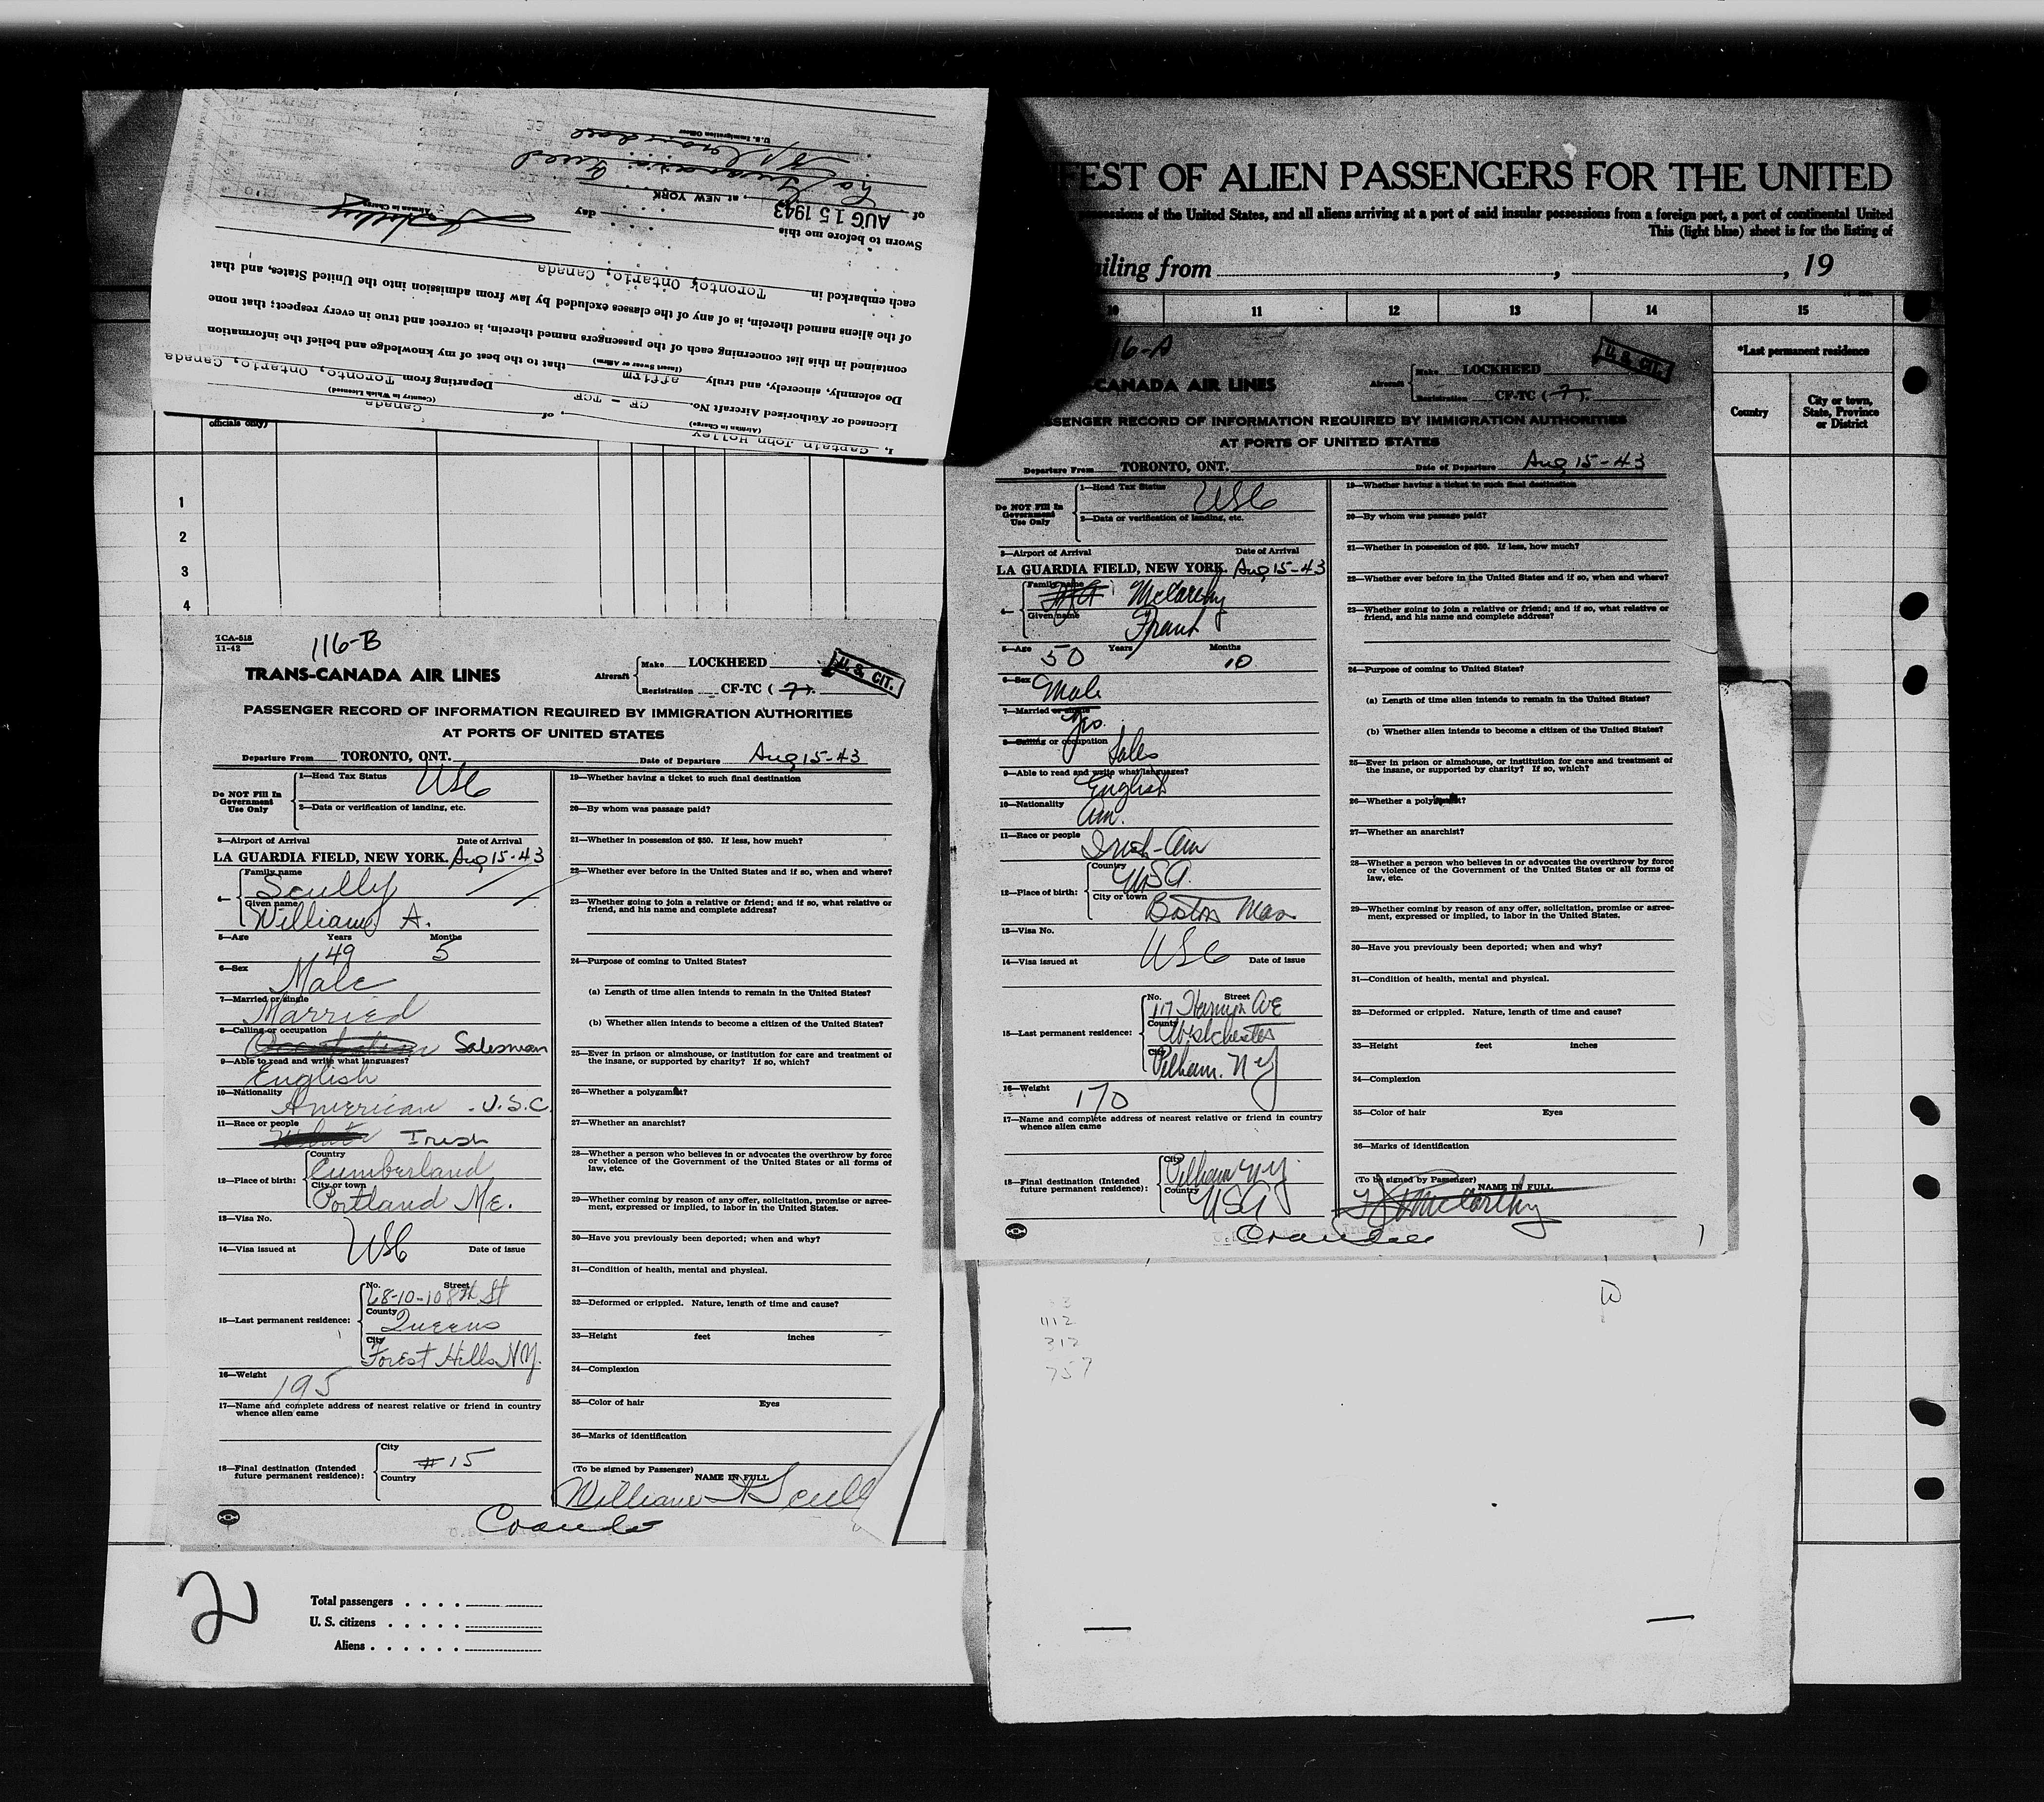 I, Captain John Holley
(Airman in Charge)
Licensed or Authorized Aircraft No. CF - TCF, of Canada
(Country in Which Licensed)
Departing from Toronto, Ontario, Canada
Do solemnly, sincerely, and truly affirm that to the best of my knowledge and belief the information
(Insert Swear or Affirm)
contained in this list concerning each of the passengers named therein, is correct and true in every respect; that none
of the aliens named therein, is of any of the classes excluded by law from admission into the United States, and that
each embarked in Toronto, Ontario, Canada
Airman in Charge
Sworn to before me this day
of AUG 15 1943, at NEW YORK
U.S. Immigration Officer
officials only)
1
2
3
4
TCA-518
11-42
116-B
TRANS-CANADA AIR LINES
Aircraft
Make LOCKHEED
Registration CF-TC (7).
U. S. CIT.
PASSENGER RECORD OF INFORMATION REQUIRED BY IMMIGRATION AUTHORITIES
AT PORTS OF UNITED STATES
Departure From TORONTO, ONT. Date of Departure Aug 15-43
Do NOT Fill In
Government
Use Only
1—Head Tax Status USC
2—Data or verification of landing, etc.
3—Airport of Arrival Date of Arrival
LA GUARDIA FIELD, NEW YORK. Aug 15-43
4—
Family name
Scully
Given name
William A.
5—Age Years Months
49 5
6—Sex
Male
7—Married or single
Married
8—Calling or occupation
Salesman
9—Able to read and write what languages?
English
10—Nationality
American - U.S.C.
11—Race or people
Irish
12—Place of birth:
Country
Cumberland
City or town
Portland Me.
13—Visa No.
USC
14—Visa issued at Date of issue
15—Last permanent residence:
No. Street
68-10-108th St
County
Queens
City
Forest Hills N.Y.
16—Weight
195
17—Name and complete address of nearest relative or friend in country
whence alien came
18—Final destination (Intended
future permanent residence):
City
#15
Country
19—Whether having a ticket to such final destination
20—By whom was passage paid?
21—Whether in possession of $50. If less, how much?
22—Whether ever before in the United States and if so, when and where?
23—Whether going to join a relative or friend; and if so, what relative or
friend, and his name and complete address?
24—Purpose of coming to United States?
(a) Length of time alien intends to remain in the United States?
(b) Whether alien intends to become a citizen of the United States?
25—Ever in prison or almshouse, or institution for care and treatment of
the insane, or supported by charity? If so, which?
26—Whether a polygamist?
27—Whether an anarchist?
28—Whether a person who believes in or advocates the overthrow by force
or violence of the Government of the United States or all forms of
law, etc.
29—Whether coming by reason of any offer, solicitation, promise or agree-
ment, expressed or implied, to labor in the United States.
30—Have you previously been deported; when and why?
31—Condition of health, mental and physical.
32—Deformed or crippled. Nature, length of time and cause?
33—Height feet inches
34—Complexion
35—Color of hair Eyes
36—Marks of identification
(To be signed by Passenger)
NAME IN FULL
William A Scull
2
Total passengers
U. S. citizens
Aliens
FEST OF ALIEN PASSENGERS FOR THE UNITED
possessions of the United States, and all aliens arriving at a port of said insular possessions from a foreign port, a port of continental United
This (light blue) sheet is for the listing of
ailing from , , 19
10 11 12 13 14 15
*Last permanent residence
Country
City or town,
State, Province
or District
16-A
-CANADA AIR LINES
Aircraft
Make LOCKHEED
Registration CF-TC (7).
U. S. CIT.
SSENGER RECORD OF INFORMATION REQUIRED BY IMMIGRATION AUTHORITIES
AT PORTS OF UNITED STATES
Departure From TORONTO, ONT. Date of Departure Aug 15-43
Do NOT Fill In
Government
Use Only
1—Head Tax Status USC
2—Data or verification of landing, etc.
3—Airport of Arrival Date of Arrival
LA GUARDIA FIELD, NEW YORK. Aug 15-43
4—
Family name
McCarthy
Given name
Frank
5—Age Years Months
50 10
6—Sex
Male
7—Married or single
Yes.
8—Calling or occupation
Sales
9—Able to read and write what languages?
English
10—Nationality
Am.
11—Race or people
Irish-Am
12—Place of birth:
Country
USA.
City or town
Boston Mass
13—Visa No.
USC
14—Visa issued at Date of issue
15—Last permanent residence:
No. Street
117 Ave
County
Westchester
City
Pelham. N Y
16—Weight
170
17—Name and complete address of nearest relative or friend in country
whence alien came
18—Final destination (Intended
future permanent residence):
City
Pelham NY.
Country
USA
19—Whether having a ticket to such final destination
20—By whom was passage paid?
21—Whether in possession of $50. If less, how much?
22—Whether ever before in the United States and if so, when and where?
23—Whether going to join a relative or friend; and if so, what relative or
friend, and his name and complete address?
24—Purpose of coming to United States?
(a) Length of time alien intends to remain in the United States?
(b) Whether alien intends to become a citizen of the United States?
25—Ever in prison or almshouse, or institution for care and treatment of
the insane, or supported by charity? If so, which?
26—Whether a polygamist?
27—Whether an anarchist?
28—Whether a person who believes in or advocates the overthrow by force
or violence of the Government of the United States or all forms of
law, etc.
29—Whether coming by reason of any offer, solicitation, promise or agree-
ment, expressed or implied, to labor in the United States.
30—Have you previously been deported; when and why?
31—Condition of health, mental and physical.
32—Deformed or crippled. Nature, length of time and cause?
33—Height feet inches
34—Complexion
35—Color of hair Eyes
36—Marks of identification
(To be signed by Passenger)
NAME IN FULL
McCarthy
1
312
757